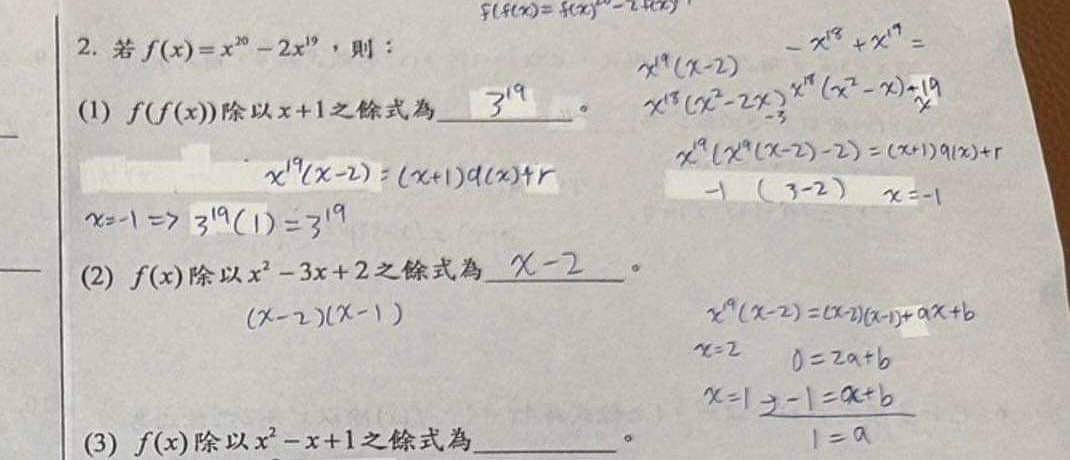 f(f(x)) = f(x)²⁰ - 2f(x)¹⁹
2. 若 f(x) = x²⁰ - 2x¹⁹，則：
- x¹⁸ + x¹⁹ =
x¹⁹(x-2)
(1) f(f(x)) 除以 x+1 之餘式為 3¹⁹ 。
x¹⁸(x²-2x) x¹⁸(x²-x) + 19
-3 x
x¹⁹(x¹⁹(x-2)-2) = (x+1)q(x)+r
x¹⁹(x-2) = (x+1)q(x)+r
-1 ( 3-2) x=-1
x=-1 => 3¹⁹(1) = 3¹⁹
(2) f(x) 除以 x² - 3x + 2 之餘式為 x-2 。
(x-2)(x-1)
x¹⁹(x-2) = (x-2)(x-1)+ax+b
x=2 0=2a+b
x=1 → -1=a+b
1=a
(3) f(x) 除以 x² - x + 1 之餘式為 。